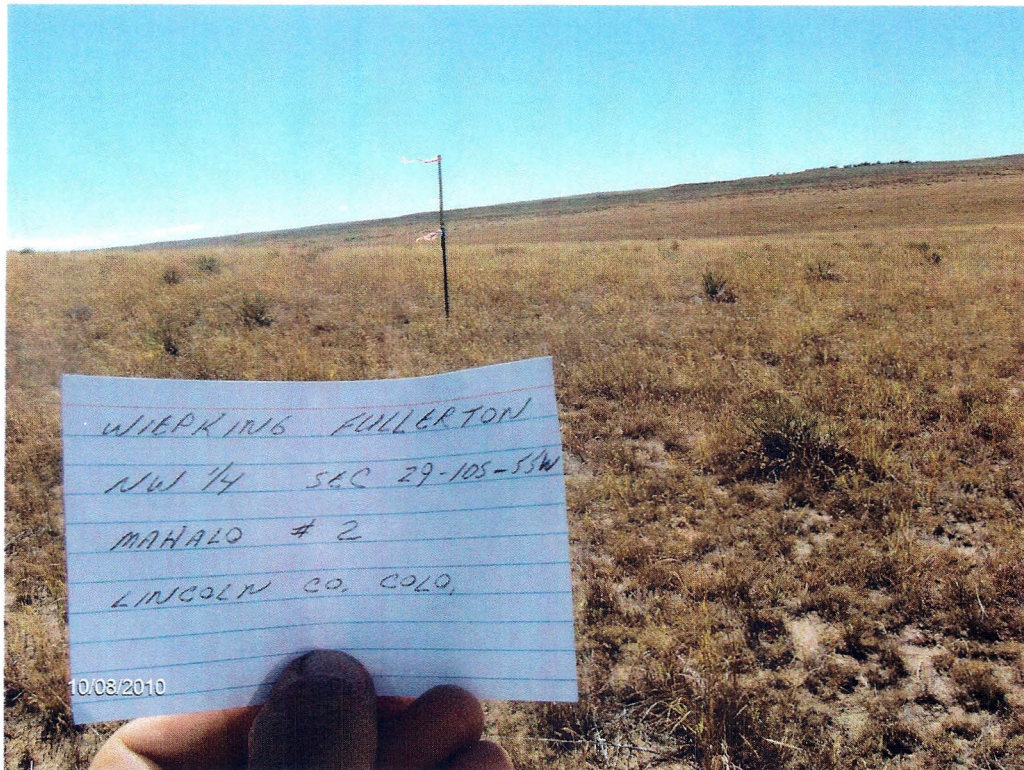 WIEPKING FULLERTON
NW 1/4 SEC 29-10S-55W
MAHALO # 2
LINCOLN CO. COLO.
10/08/2010